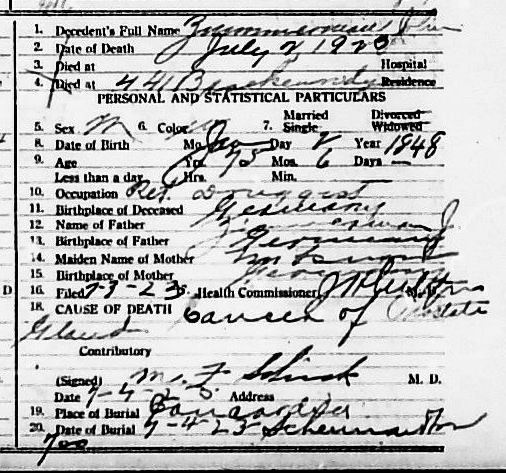 1. Decedent's Full Name Zimmerman John
2. Date of Death July 2 1923
3. Died at Hospital
4. Died at 441 Residence
PERSONAL AND STATISTICAL PARTICULARS
5. Sex M 6. Color W 7. Married Single Divorced Widowed
8. Date of Birth Mo. Jan Day 2 Year 1848
9. Age Yrs. 75 Mos. 6 Days —
Less than a day Hrs. Min.
10. Occupation Ret. Druggist
11. Birthplace of Deceased Germany
12. Name of Father Zimmerman J.
13. Birthplace of Father Germany
14. Maiden Name of Mother
15. Birthplace of Mother Germany
16. Filed 7-3-23 Health Commissioner
18. CAUSE OF DEATH Cancer of Prostate
Gland
Contributory
(Signed) M. F. M. D.
Date 7-4-23 Address
19. Place of Burial Concordia
20. Date of Burial 7-4-23
700
D